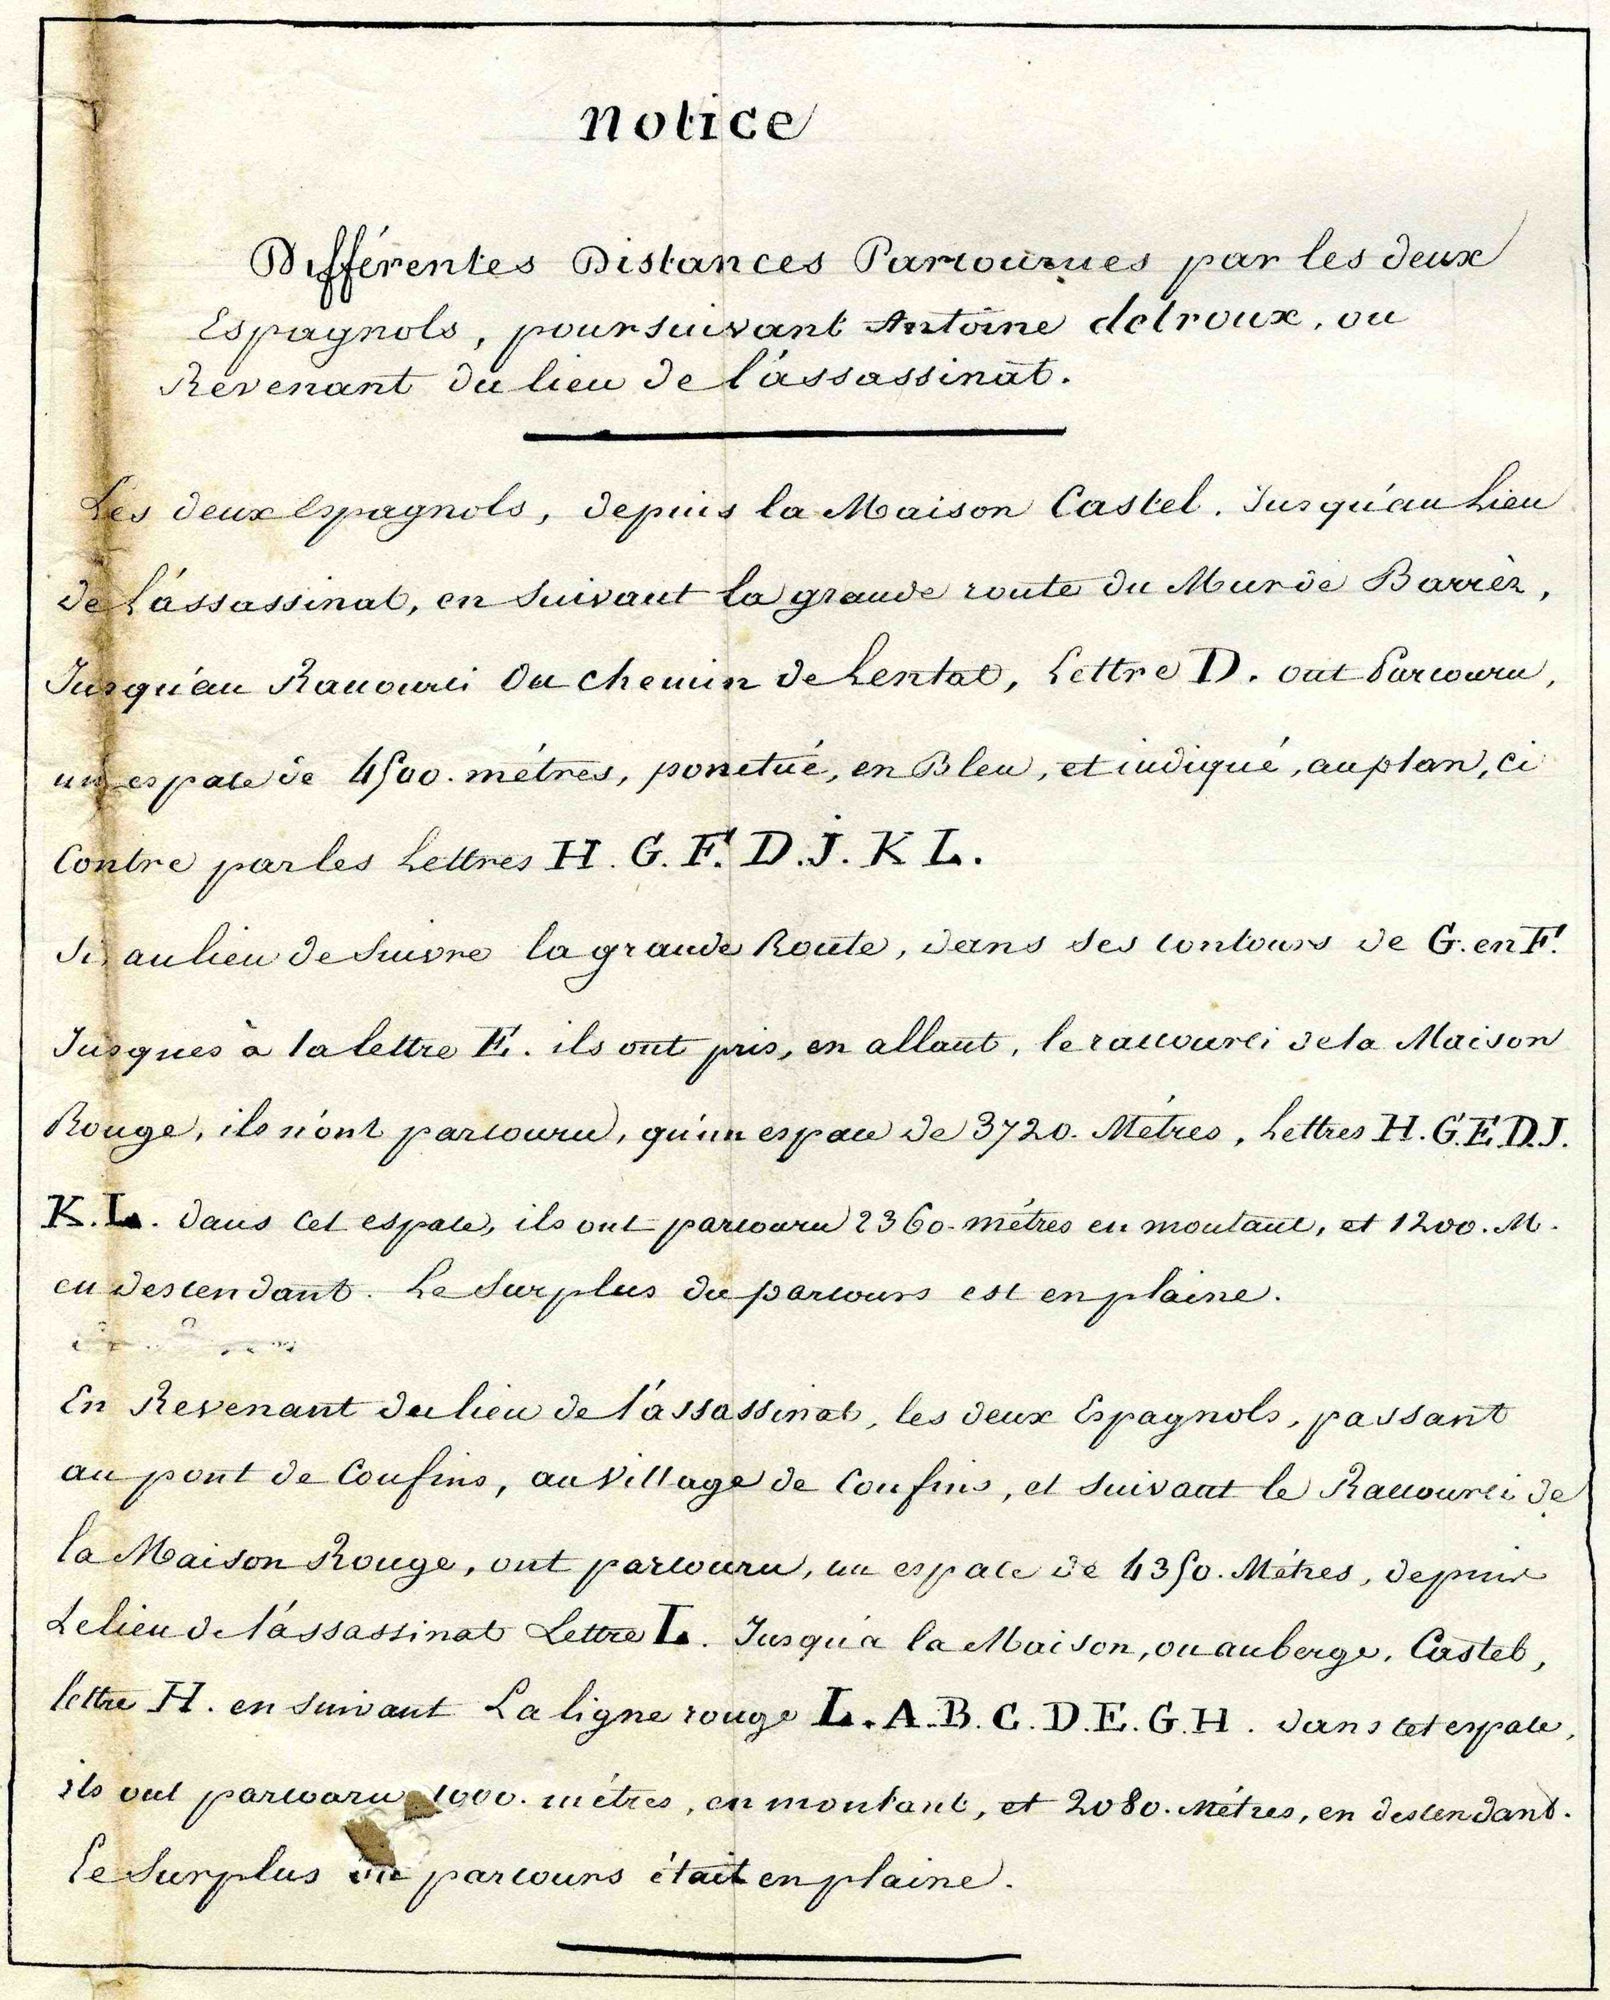 Notice
Différentes Distances Parcourues par les deux
Espagnols, poursuivant Antoine delroux, ou
Revenant du lieu de l'assassinat.
Les deux espagnols, depuis la Maison Castel. Jusqu'au Lieu
de l'assassinat, en suivant la grande route du Mur de Barrèz,
Jusqu'au Raccourci Ou chemin de Lentat, Lettre D. ont Parcouru,
un espace de 4500. métres, ponctué, en Bleu, et indiqué, au plan, ci
Contre par les Lettres H. G. F. D. J. K L.
Si au lieu de suivre la grande Route, dans ses contours de G. en F.
Jusques à la lettre E. ils ont pris, en allant, le raccourci de la Maison
Rouge, ils n'ont parcouru, qu'un espace de 3720. Métres, Lettres H. G. E D. J.
K. L. dans cet espace, ils ont parcouru 2360. métres en montant, et 1200. M.
en descendant. Le Surplus du parcours est en plaine.
En Revenant du lieu de l'assassinat, les deux Espagnols, passant
au pont de Confins, au Village de Confins, et suivant le Raccourci de
la Maison Rouge, ont parcouru, un espace de 4350. Métres, depuis
Le lieu de l'assassinat Lettre L. Jusqu'à la Maison, ou auberge, Castel,
lettre H. en suivant La ligne rouge L. A. B. C. D. E. G. H. dans cet espace,
ils ont parcouru 1000. métres, en montant, et 2080. Métres, en descendant.
Le Surplus du parcours était en plaine.